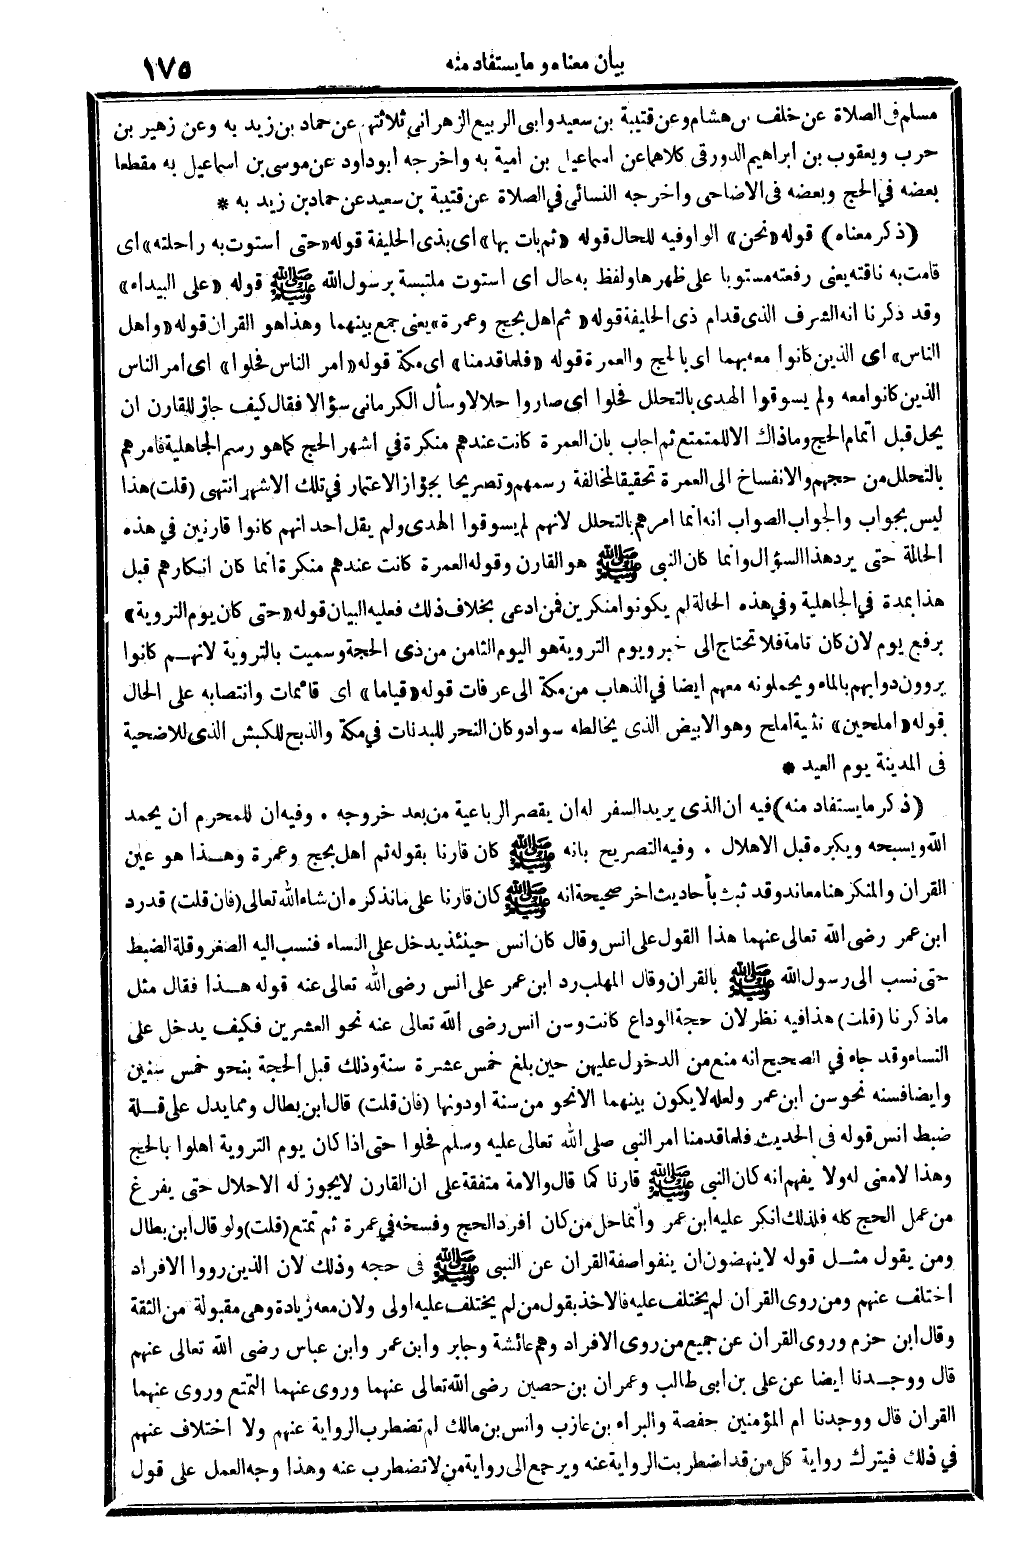 بيان معناه وما يستفاد منه ١٧٥
مسلم في الصلاة عن خلف بن هشام وعن قتيبة بن سعيد وابى الربيع الزهرانى ثلاثتهم عن حماد بن زيد به وعن زهير بن
حرب ويعقوب بن ابراهيم الدورقى كلاهما عن اسماعيل بن امية به واخرجه ابو داود عن موسى بن اسماعيل به مقطعا
بعضه في الحج وبعضه في الاضاحى واخرجه النسائى في الصلاة عن قتيبة بن سعيد عن حماد بن زيد به *
(ذكر معناه) قوله «ونحن» الواو فيه للحال قوله «ثم بات بها» اى بذى الحليفة قوله «حتى استوت به راحلته» اى
قامت به ناقته يعنى رفعته مستويا على ظهرها ولفظ به حال اى استوت ملتبسة برسول الله ﷺ قوله «على البيداء»
وقد ذكرنا انه الشرف الذى قدام ذى الحليفة قوله «ثم اهل بحج وعمرة» يعنى جمع بينهما وهذا هو القران قوله «واهل
الناس» اى الذين كانوا معه بهما اى بالحج والعمرة قوله «فلما قدمنا» اى مكة قوله «امر الناس فحلوا» اى امر الناس
الذين كانوا معه ولم يسوقوا الهدى بالتحلل فحلوا اى صاروا حلالا وسأل الكرمانى سؤالا فقال كيف جاز للقارن ان
يحل قبل اتمام الحج وما ذاك الا للمتمتع ثم اجاب بان العمرة كانت عندهم منكرة في اشهر الحج كما هو رسم الجاهلية فامرهم
بالتحلل من حجهم والانفساخ الى العمرة تحقيقا لمخالفة رسمهم وتصريحا بجواز الاعتمار في تلك الاشهر انتهى (قلت) هذا
ليس بجواب والجواب الصواب انه انما امرهم بالتحلل لانهم لم يسوقوا الهدى ولم يقل احد انهم كانوا قارنين في هذه
الحالة حتى يرد هذا السؤال وانما كان النبى ﷺ هو القارن وقوله العمرة كانت عندهم منكرة انما كان انكارهم قبل
هذا بمدة في الجاهلية وفي هذه الحالة لم يكونوا منكرين فمن ادعى بخلاف ذلك فعليه البيان قوله «حتى كان يوم التروية»
برفع يوم لان كان تامة فلا تحتاج الى خبر ويوم التروية هو اليوم الثامن من ذى الحجة وسميت بالتروية لانهم كانوا
يروون دوابهم بالماء ويحملونه معهم ايضا في الذهاب من مكة الى عرفات قوله «قياما» اى قائمات وانتصابه على الحال
قوله «املحين» تثنية املح وهو الابيض الذى يخالطه سواد وكان النحر للبدنات في مكة والذبح للكبش الذى للاضحية
في المدينة يوم العيد *
(ذكر ما يستفاد منه) فيه ان الذى يريد السفر له ان يقصر الرباعية من بعد خروجه . وفيه ان للمحرم ان يحمد
الله ويسبحه ويكبره قبل الاهلال . وفيه التصريح بانه ﷺ كان قارنا بقوله ثم اهل بحج وعمرة وهذا هو عين
القران والمنكر هنا معاند وقد ثبت بأحاديث اخر صحيحة انه ﷺ كان قارنا على ما نذكره ان شاء الله تعالى (فان قلت) قد رد
ابن عمر رضى الله تعالى عنهما هذا القول على انس وقال كان انس حينئذ يدخل على النساء فنسب اليه الصغر وقلة الضبط
حتى نسب الى رسول الله ﷺ بالقران وقال المهلب رد ابن عمر على انس رضى الله تعالى عنه قوله هذا فقال مثل
ما ذكرنا (قلت) هذا فيه نظر لان حجة الوداع كانت وسن انس رضى الله تعالى عنه نحو العشرين فكيف يدخل على
النساء وقد جاء في الصحيح انه منع من الدخول عليهن حين بلغ خمس عشرة سنة وذلك قبل الحجة بنحو خمس سنين
وايضا فسنه نحو سن ابن عمر ولعله لا يكون بينهما الا نحو من سنة او دونها (فان قلت) قال ابن بطال ومما يدل على قلة
ضبط انس قوله في الحديث فلما قدمنا امر النبى صلى الله تعالى عليه وسلم فحلوا حتى اذا كان يوم التروية اهلوا بالحج
وهذا لا معنى له ولا يفهم انه كان النبى ﷺ قارنا كما قال والامة متفقة على ان القارن لا يجوز له الاحلال حتى يفرغ
من عمل الحج كله فلذلك انكر عليه ابن عمر وانما حل من كان افرد الحج وفسخه في عمرة ثم تمتع (قلت) ولو قال ابن بطال
ومن يقول مثل قوله لا ينهضون ان ينفوا صفة القران عن النبى ﷺ في حجه وذلك لان الذين رووا الافراد
اختلف عنهم ومن روى القران لم يختلف عليه فالاخذ بقول من لم يختلف عليه اولى ولان معه زيادة وهى مقبولة من الثقة
وقال ابن حزم وروى القران عن جميع من روى الافراد وهم عائشة وجابر وابن عمر وابن عباس رضى الله تعالى عنهم
قال ووجدنا ايضا عن على بن ابى طالب وعمران بن حصين رضى الله تعالى عنهما وروى عنهما التمتع وروى عنهما
القران قال ووجدنا ام المؤمنين حفصة والبراء بن عازب وانس بن مالك لم تضطرب الرواية عنهم ولا اختلاف عنهم
في ذلك فيترك رواية كل من قد اضطربت الرواية عنه ويرجع الى رواية من لا تضطرب عنه وهذا وجه العمل على قول